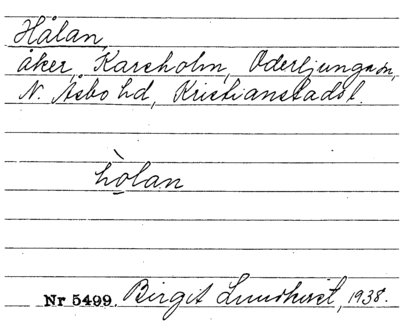 Hålan,
åker, Karsholm, Oderljungam,
N. Åsbo hd, Kristianstadsl.
hòlan
Nr 5499. Birgit Lundkvist, 1938.